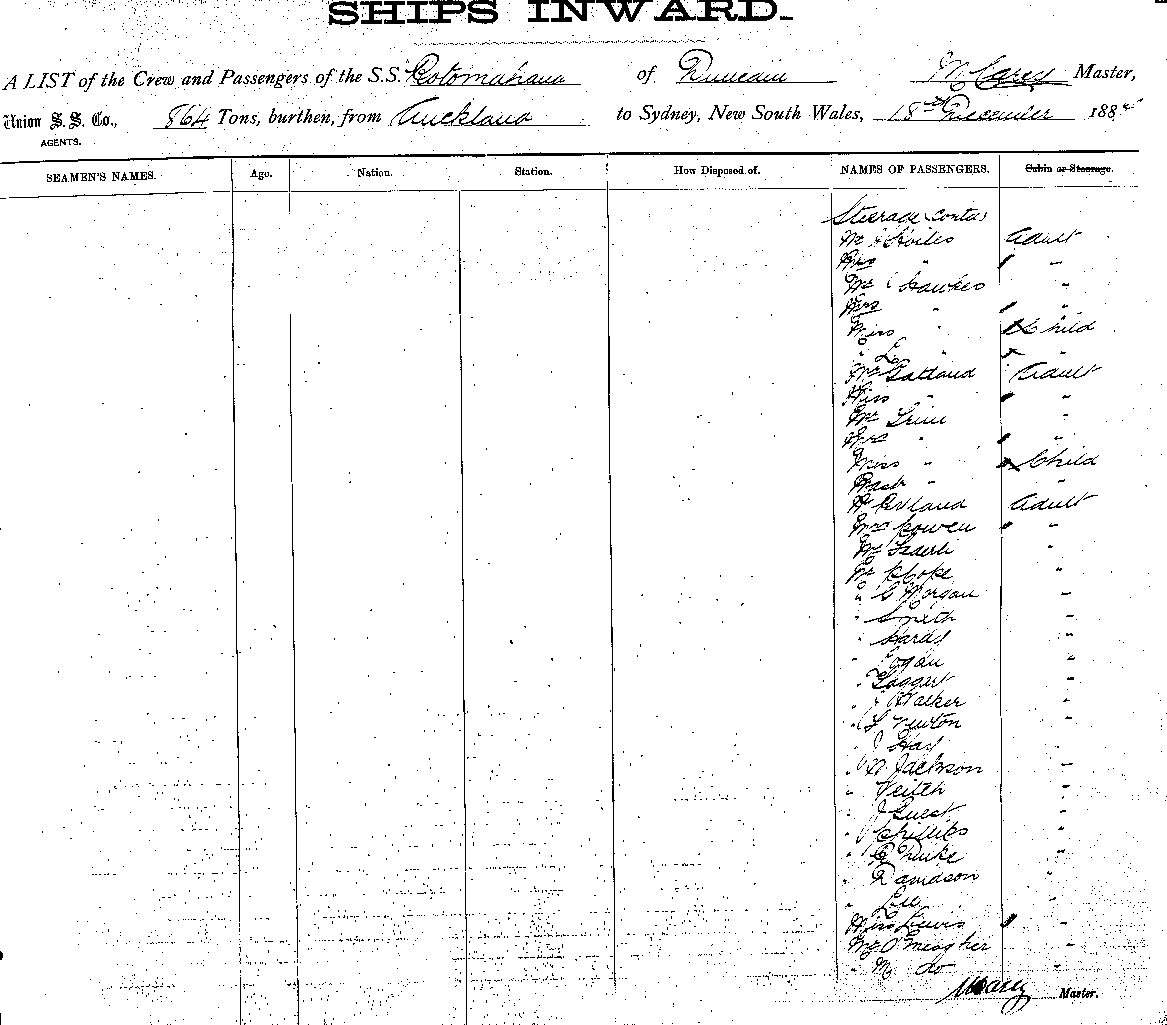 SHIPS INWARD.
A LIST of the Crew and Passengers of the S.S. Rotomahana of Dunedin W Carey Master,
Union S. S. Co., 864 Tons, burthen, from Auckland to Sydney, New South Wales, 18th December 1884
AGENTS.
SEAMEN'S NAMES. Age. Nation. Station. How Disposed of. NAMES OF PASSENGERS. Cabin or Steerage.
Steerage Contd
Mr Adult
Mrs " "
Mr Hawkes "
Mrs " "
Miss " Child
" "
Mr Gatland Adult
Miss " "
Mr Trim "
Mrs " "
Miss " Child
Mast " "
Adult
Mrs Cowen "
Mr "
Mr Cope "
" G Morgan "
" Smith "
" Hardy "
" Logan "
" Taggart "
" J Walker "
" L Newton "
" J Hay "
" W Jackson "
" Keith "
" J Guest "
" Phillips "
" C Duke "
" Davidson "
" Lee "
Miss Lewis "
Mr O'Meagher "
" M do "
W Carey Master.